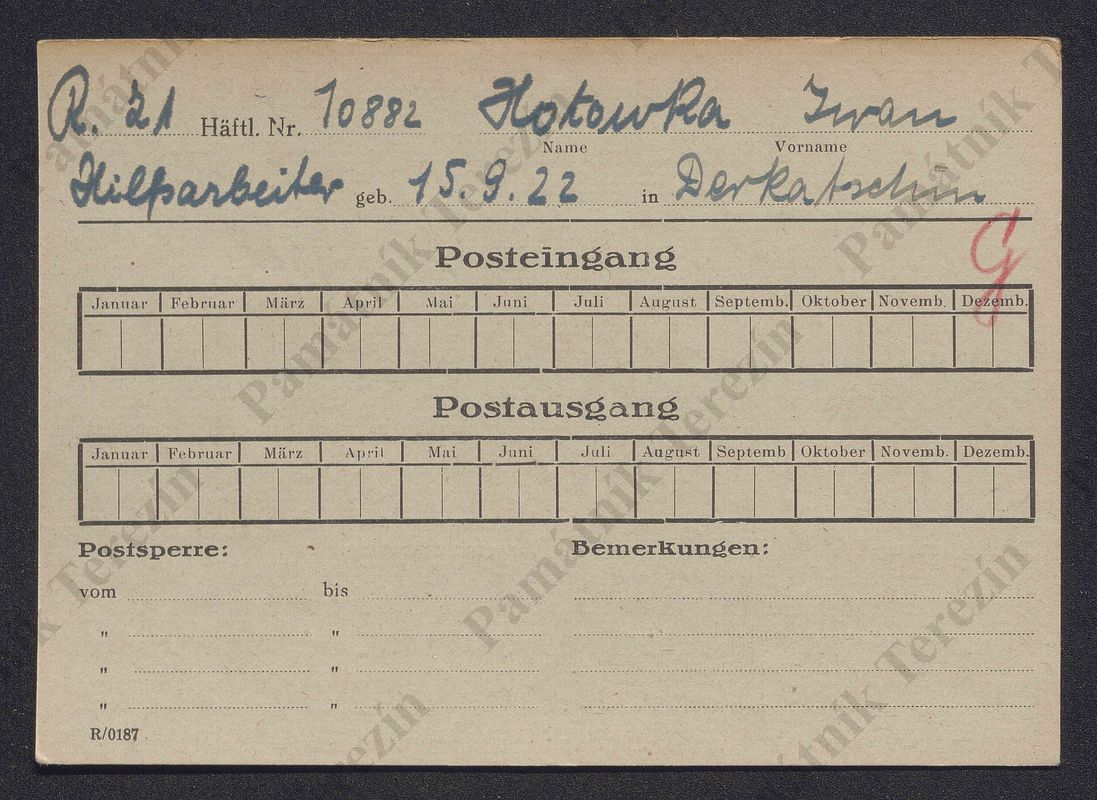 R. 21 Häftl. Nr. 10882 Hotowka Iwan
Name Vorname
Hilfsarbeiter geb. 15.9.22 in Derkatschin
G
Posteingang
Januar Februar März April Mai Juni Juli August Septemb. Oktober Novemb. Dezemb.
Postausgang
Januar Februar März April Mai Juni Juli August Septemb Oktober Novemb. Dezemb.
Postsperre: Bemerkungen:
vom bis
" "
" "
" "
R/0187
Památník Terezín